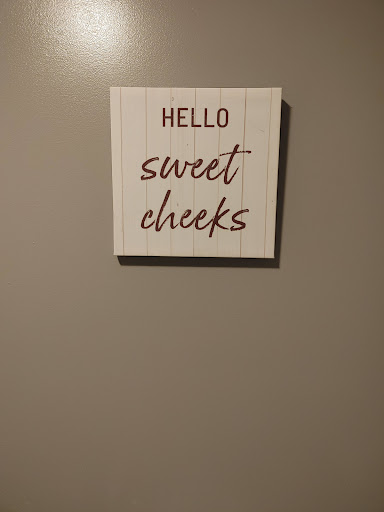 HELLO
sweet
cheeks